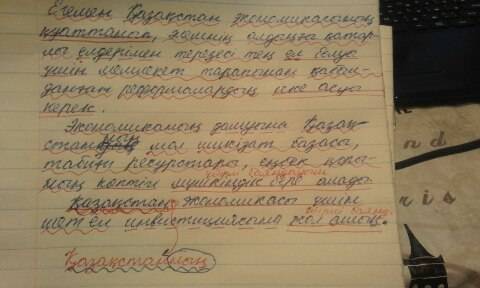 Егемен Қазақстан экономикасының
қуаттанса, әлемнің алдыңғы қатар-
лы елдерімен терезесі тең ел болуы
үшін мемлекет тарапынан қабыл-
данған реформалардың іске асуы
керек.
Экономиканың дамуына Қазақ-
станның мол шикізат базасы,
табиғи ресурстары, еңбек
көптігі мүмкіндік бере алады
Қазақстан экономикасы үшін
шет ел инвестициясына жол ашық.
Қазақстанның
n d
r i s